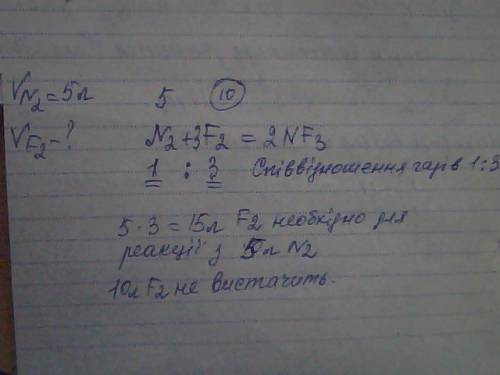 V N₂ = 5л 5 10
V F₂ - ? N₂ + 3F₂ = 2NF₃
1 : 3 Співвідношення газів 1:3
5 · 3 = 15л F₂ необхідно для
реакції з 5л N₂
10л F₂ не вистачить.